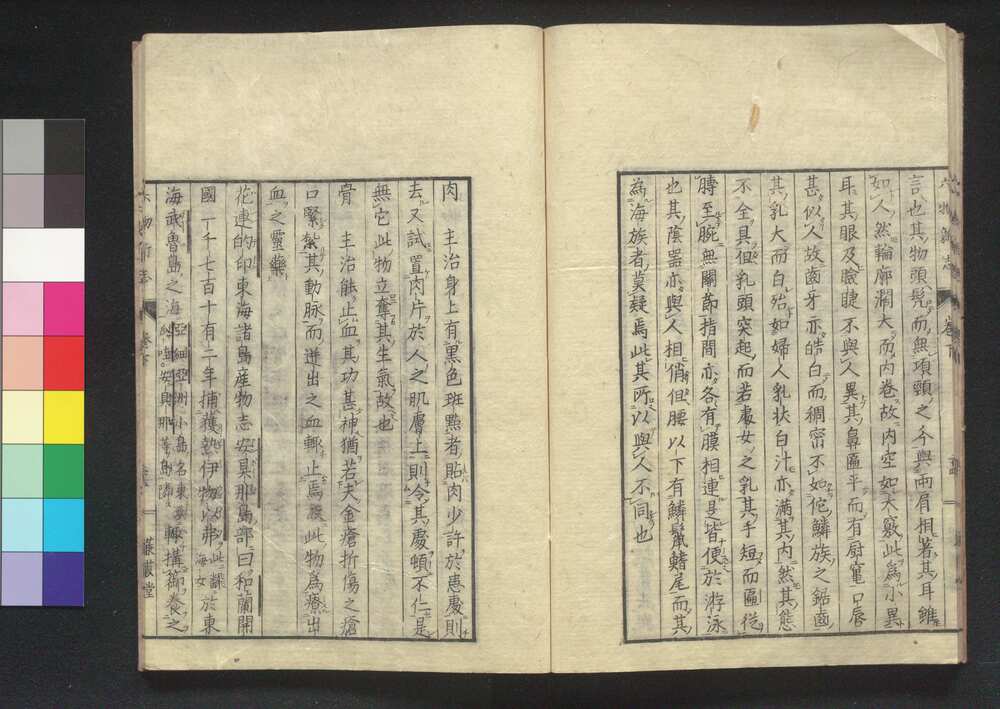 言也其物頭髡而無項頸之今與両肩相著其耳雖
如人然輪廓濶大而内巻故内空如大竅此為小異
耳其眼及臉睫不與人異其鼻匾平而有尉竃口唇
甚似人故齒牙亦皓白而稠密不如佗鱗族之鋸齒
其乳大而白殆如婦人乳状白汁亦滿其内然其態
不全具但乳頭突起而若處女之乳其手短而匾從
膊至腕無關莭指間亦各有膜相連是皆便於游泳
也其陰器亦與人相俏但腰以下有鱗鬣鰭尾而其
為海族者莫疑焉此其所以與人不同也
六物新志
巻下
肉 主治身上有黒色斑㸃者貼肉少許於患處則
去又試置肉片於人之肌膚上則令其處頓不仁是
無它此物立奪其生氣故也
骨 主治能止血其功甚神猶若夫金瘡折傷之瘡
口緊紮其動脉而迸出之血輙止焉般此物為療出
血之靈藥
花連的印東海諸島産物志安具那島部曰和蘭開
國一千七百十有二年捕獲熱伊物以弗此譯海女於東
海武魯島之海 亞細亞洲小島名東 安具那 島 輙搆蓄養之
六物新志
巻下